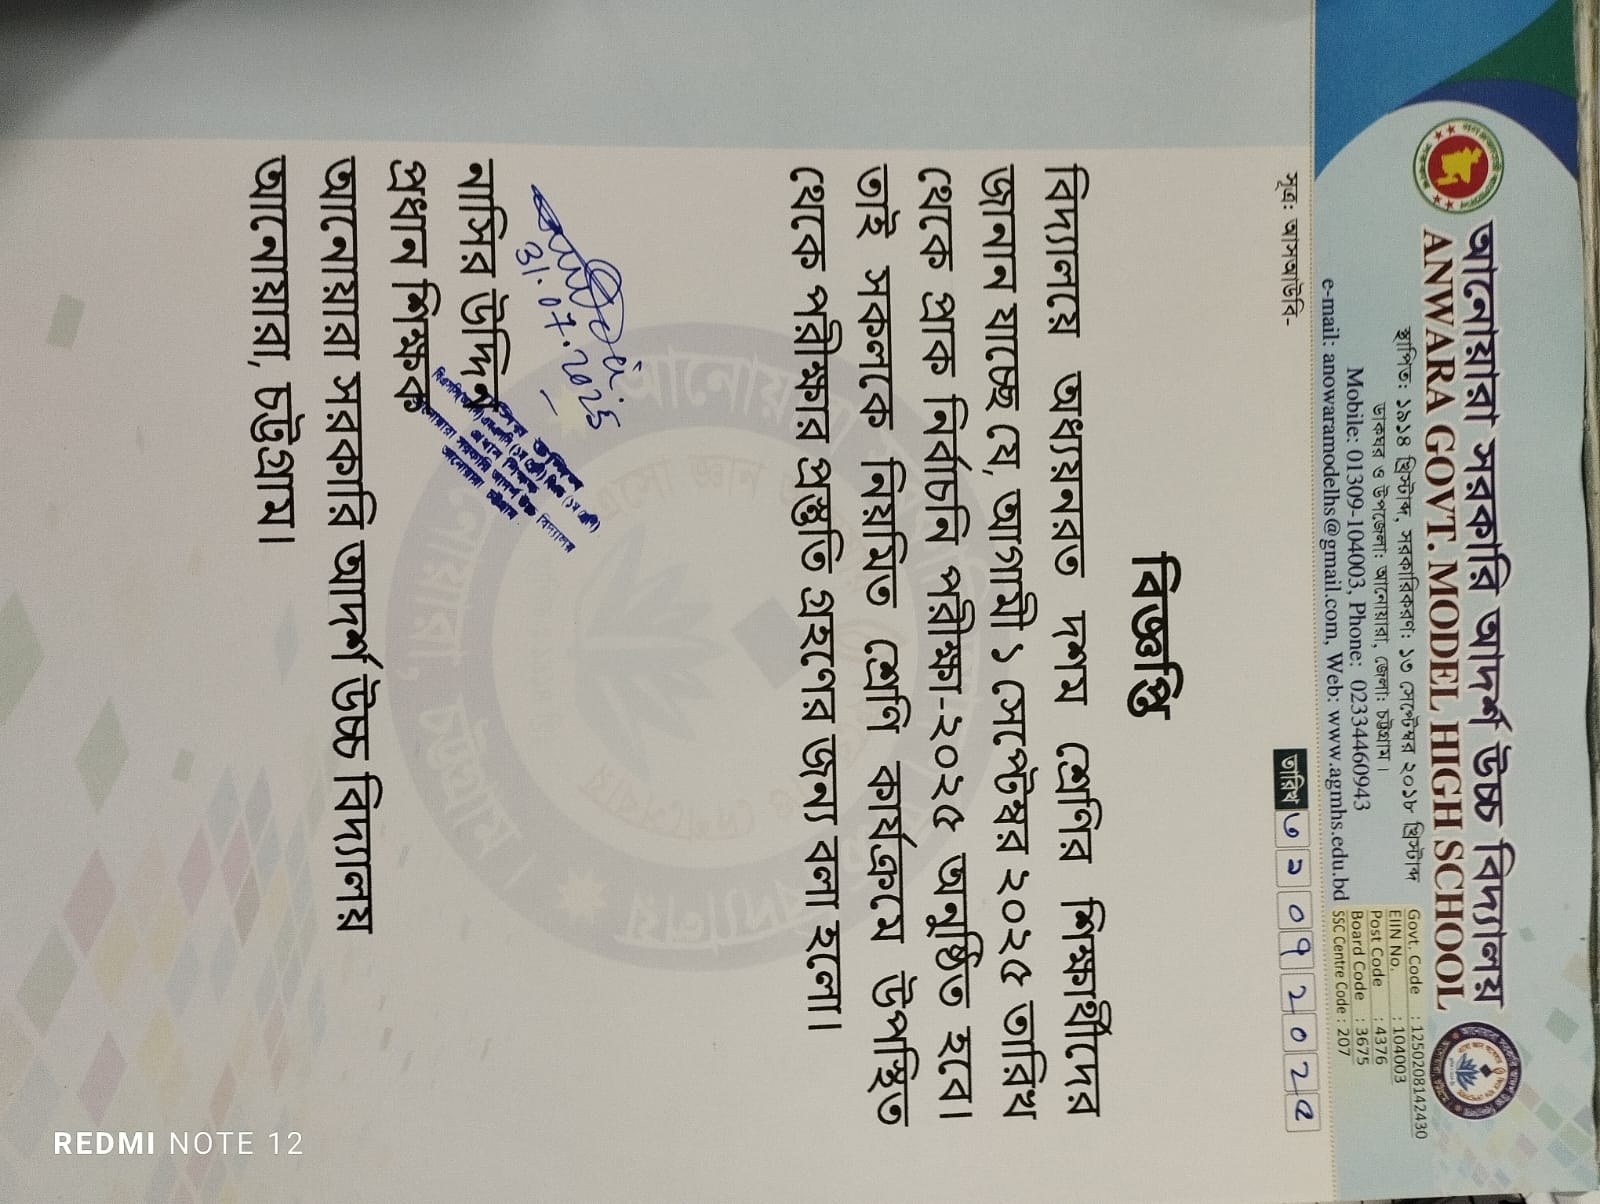 আনোয়ারা সরকারি আদর্শ উচ্চ বিদ্যালয়
ANWARA GOVT. MODEL HIGH SCHOOL
স্থাপিত: ১৯১৪ খ্রিস্টাব্দ, সরকারিকরণ: ১৩ সেপ্টেম্বর ২০১৮ খ্রিস্টাব্দ
ডাকঘর ও উপজেলা: আনোয়ারা, জেলা: চট্টগ্রাম।
Mobile: 01309-104003, Phone: 02334460943
e-mail: anowaramodelhs@gmail.com, Web: www.agmhs.edu.bd
Govt. Code : 1250208142430
EIIN No. : 104003
Post Code : 4376
Board Code : 3675
SSC Centre Code : 207
সূত্র: আসআউবি-
তারিখ ৩১০৭২০২৫
বিজ্ঞপ্তি
বিদ্যালয়ে অধ্যয়নরত দশম শ্রেণির শিক্ষার্থীদের
জানান যাচ্ছে যে, আগামী ১ সেপ্টেম্বর ২০২৫ তারিখ
থেকে প্রাক নির্বাচনি পরীক্ষা-২০২৫ অনুষ্ঠিত হবে।
তাই সকলকে নিয়মিত শ্রেণি কার্যক্রমে উপস্থিত
থেকে পরীক্ষার প্রস্তুতি গ্রহণের জন্য বলা হলো।
31.07.2025
নাসির উদ্দিন
প্রধান শিক্ষক
আনোয়ারা সরকারি আদর্শ উচ্চ বিদ্যালয়
আনোয়ারা, চট্টগ্রাম।
প্রধান শিক্ষক
আনোয়ারা সরকারি আদর্শ উচ্চ বিদ্যালয়
আনোয়ারা, চট্টগ্রাম
REDMI NOTE 12